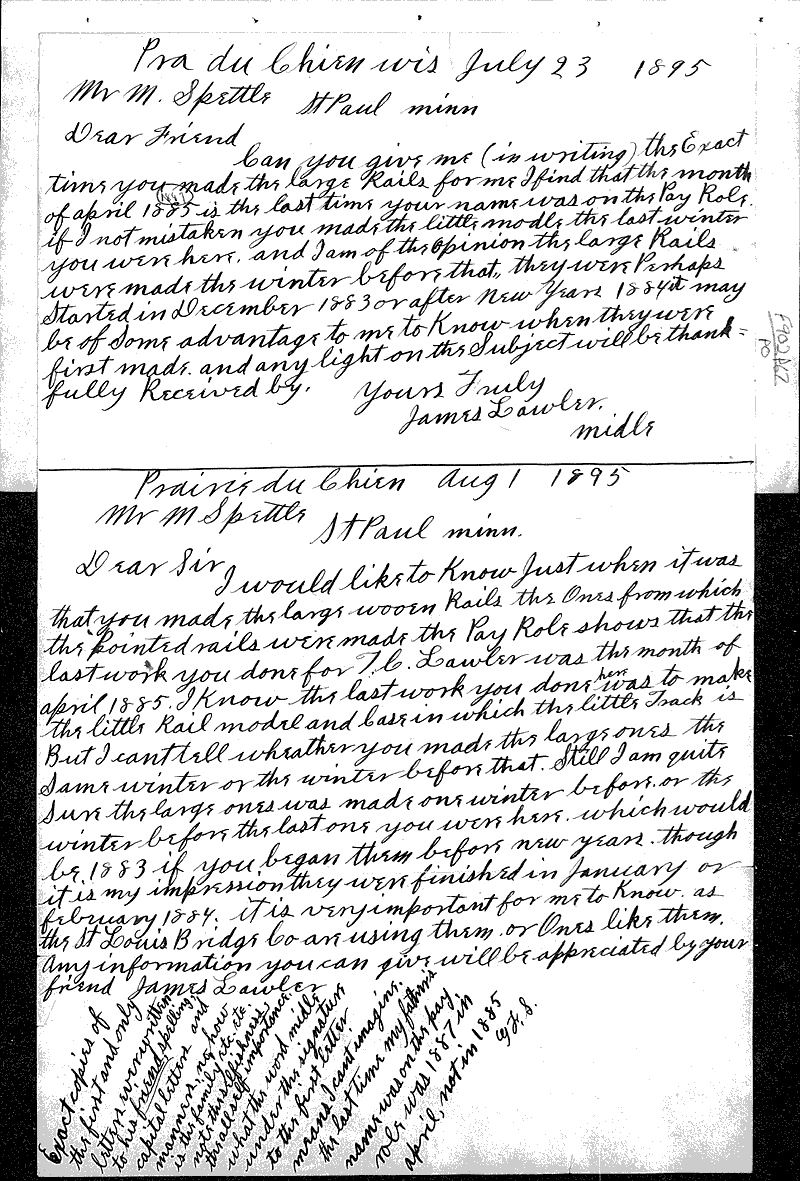 Pra du Chien wis July 23 1895
Mr M. Spettle St Paul minn
Dear Friend
Can you give me (in writing) the Exact
time you made the large Rails for me I find that the month
of april 1885 is the last time your name was on the Pay Role.
if I not mistaken you made the little modle the last winter
you were here. and I am of the Opinion the large Rails
were made the winter before that,, they were Perhaps
Started in December 1883 or after New Years 1884 it may
be of Some advantage to me to Know when they were
first made. and any light on the Subject will be thank=
fully Received by. Yours Truly
James Lawler.
midle
F902P6Z
PO
Prairie du Chien Aug 1 1895
Mr M Spettle
St Paul minn.
Dear Sir
I would like to Know Just when it was
that you made the large wooen Rails the Ones from which
the Pointed rails were made the Pay Role shows that the
last work you done for T. C. Lawler was the month of
april 1885. I Know the last work you done here was to make
the little Rail model and Case in which the little Track is
But I cant tell wheather you made the large ones the
Same winter or the winter before that. Still I am quite
Sure the large ones was made one winter before. or the
winter before the last one you were here. which would
be 1883 if you began them before new years. though
it is my impression they were finished in January or
february 1884. it is very important for me to Know. as
the St Louis Bridge Co are using them. or Ones like them.
Any information you can give will be appreciated by your
friend James Lawler
Exact copies of
the first and only
letters ever written
to his friend, spelling,
capital letters and
manner. no, how
is the family etc. etc.
note the selfishness
the all self importance.
what the word midle
under the signature
to the first letter
means I cant imagine.
the last time my father's
name was on the pay
role was 1887 in
april, not in 1885
G. F. S.